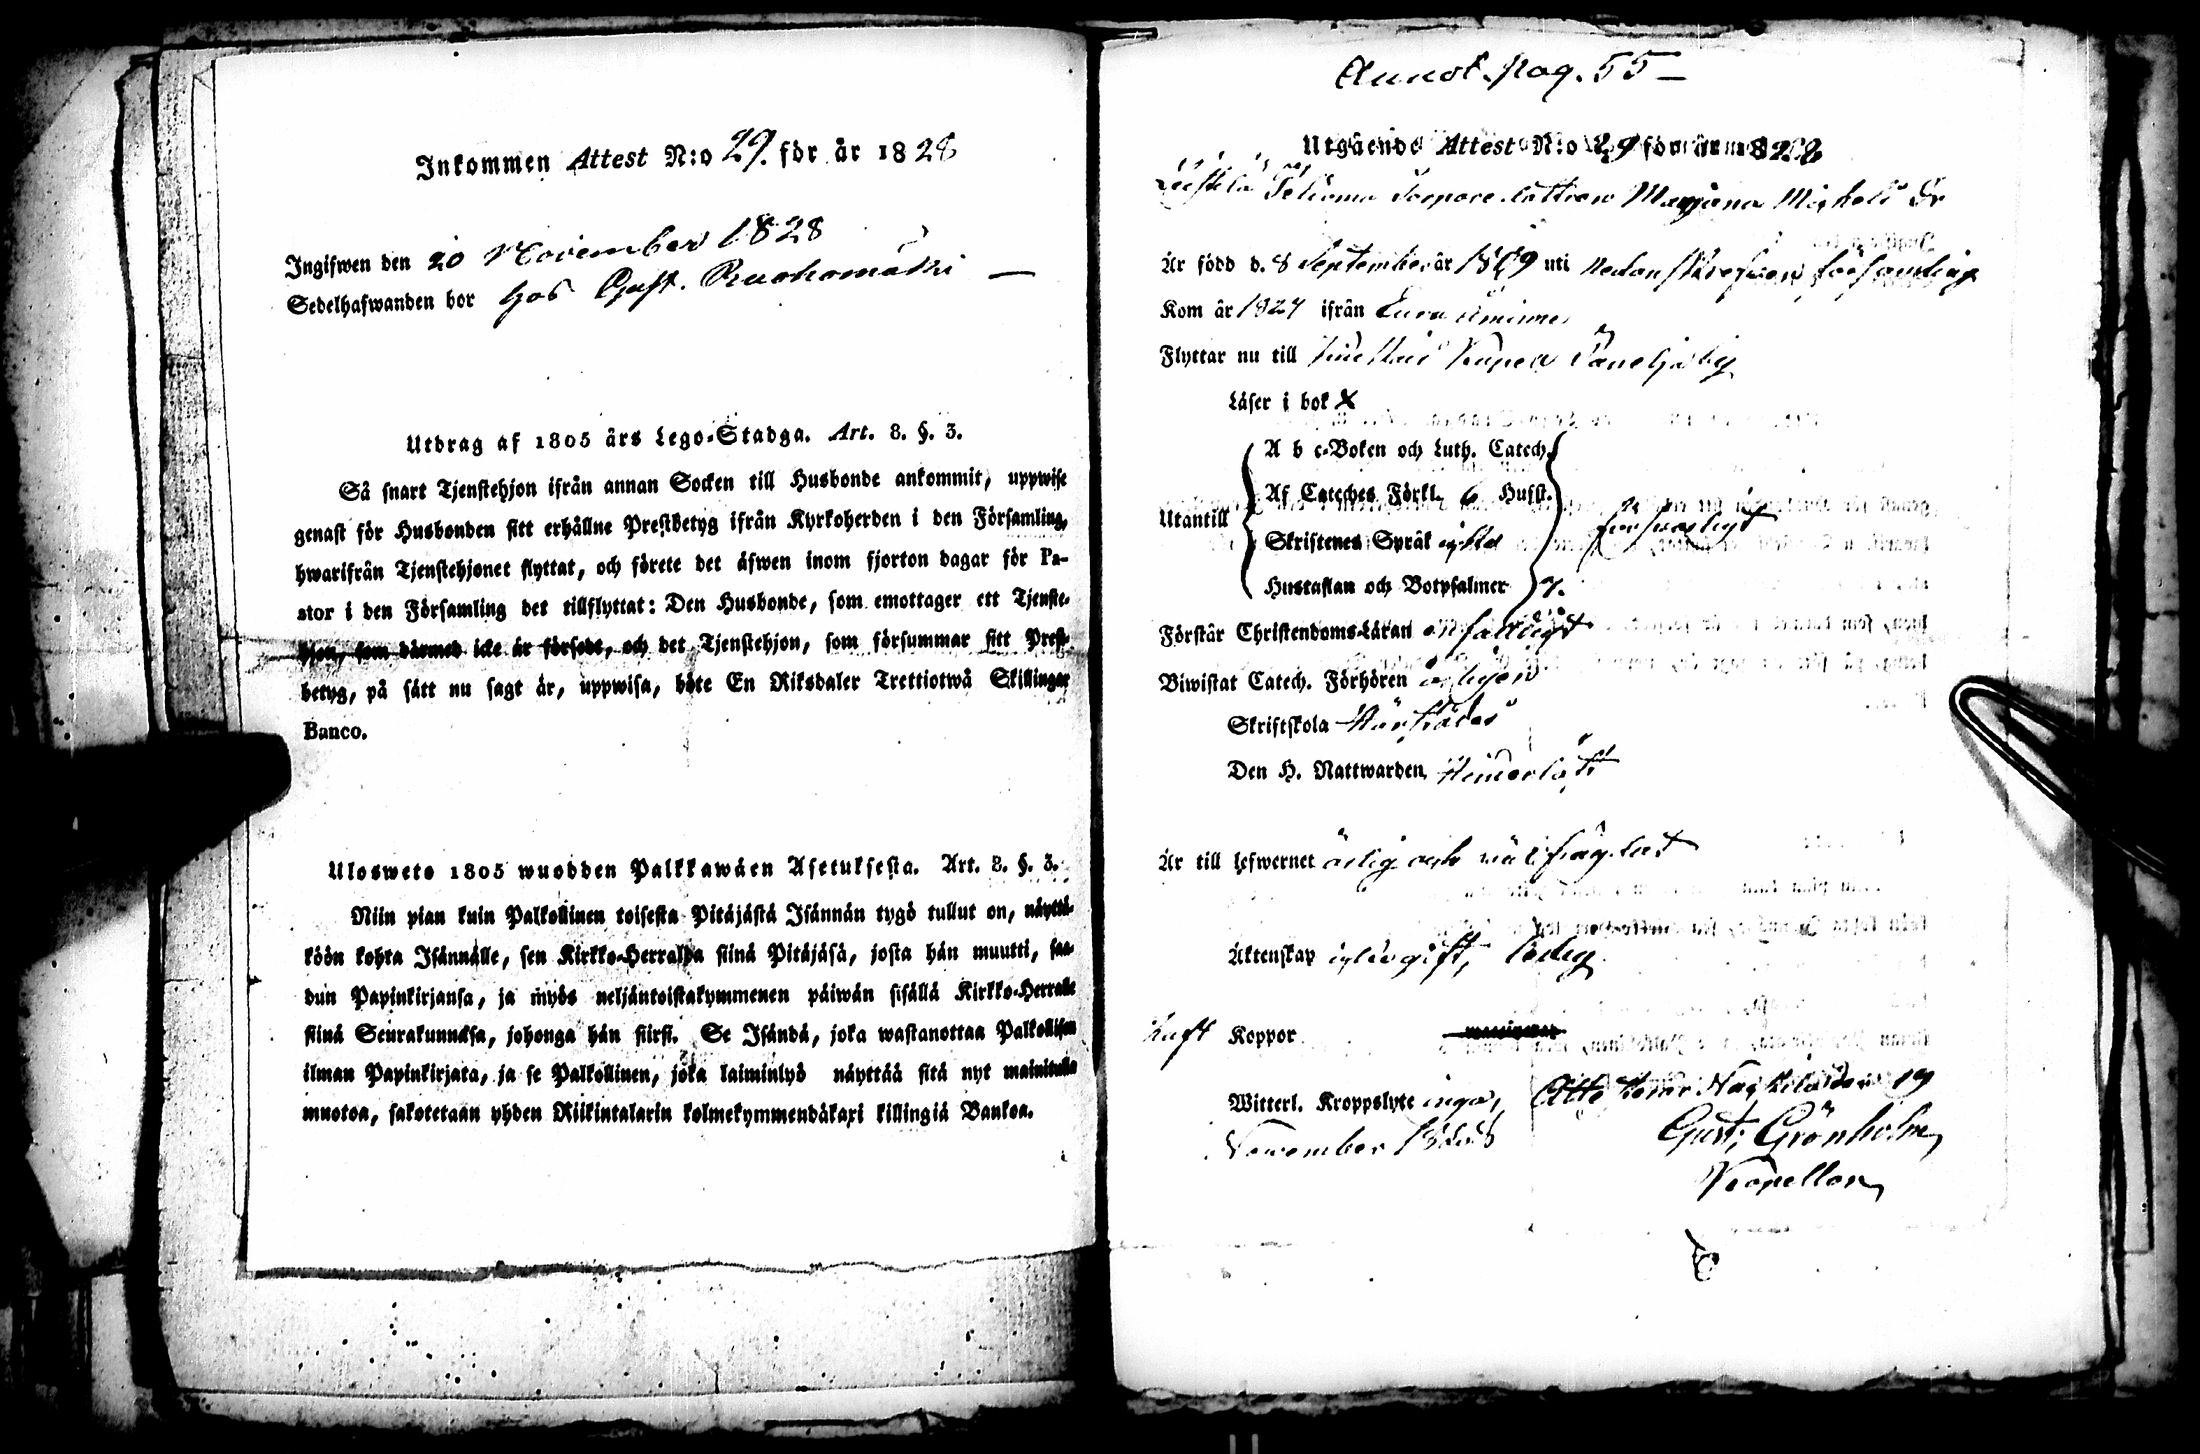 Inkommen Attest N:o 29. för år 1828
Ingifwen den 20 November 1828
Sedelhafwanden bor hos Gust. Ruohomäki —
Utdrag af 1805 års Lego-Stadga. Art. 8. §. 3.
Så snart Tjenstehjon ifrån annan Socken till Husbonde ankommit, uppwise
genast för Husbonden sitt erhållne Prestbetyg ifrån Kyrkoherden i den Församling,
hwarifrån Tjenstehjonet flyttat, och förete det äfwen inom fjorton dagar för Pa-
stor i den Församling det tillflyttat: Den Husbonde, som emottager ett Tjenste-
hjon, som därmed icke är försedt, och det Tjenstehjon, som försummar sitt Prest-
betyg, på sätt nu sagt är, uppwisa, böte En Riksdaler Trettiotwå Skillingar
Banco.
Ulosweto 1805 wuodden Palkkawäen Asetuksesta. Art. 8. §. 3.
Niin pian kuin Palkollinen toisesta Pitäjästä Isännän tygö tullut on, näyttä-
köön kohta Isännälle, sen Kirkko-Herralda siinä Pitäjäsä, josta hän muutti, saa-
dun Papinkirjansa, ja myös neljäntoistakymmenen päiwän sisällä Kirkko-Herralle
siinä Seurakunnasa, johonga hän siirsi. Se Isändä, joka wastanottaa Palkollisen
ilman Papinkirjata, ja se Palkollinen, joka laiminlyö näyttää sitä nyt mainitulla
muotoa, sakotetaan yhden Riikintalarin kolmekymmendäkaxi killingiä Bankoa.
Annot. pag. 55 —
Utgående Attest N:o 29 för år 1828
Torpare dottren Marjana Mickels Dr
Är född d. 8 September år 1809 uti nedanskrefven församling
Kom år 1827 ifrån Eura åminne
Flyttar nu till Kapell by
Läser i bok X
A b c-Boken och Luth. Catech.
Af Catches Förkl. 6 Hufst.
Utantill
Skriftenes Språk
försvarligt
Hustaflan och Botpsalmer 7.
Förstår Christendoms-Läran enfaldigt
Biwistat Catech. Förhören årligen
Skriftskola
Den H. Nattwarden
Är till lefwernet ärlig och wäl frägdad
Äktenskap ej lärgift, ledig
Haft Koppor
Witterl. Kroppslyte inga, den 19
November 1828
Gust. Grönholm,
Kapellan